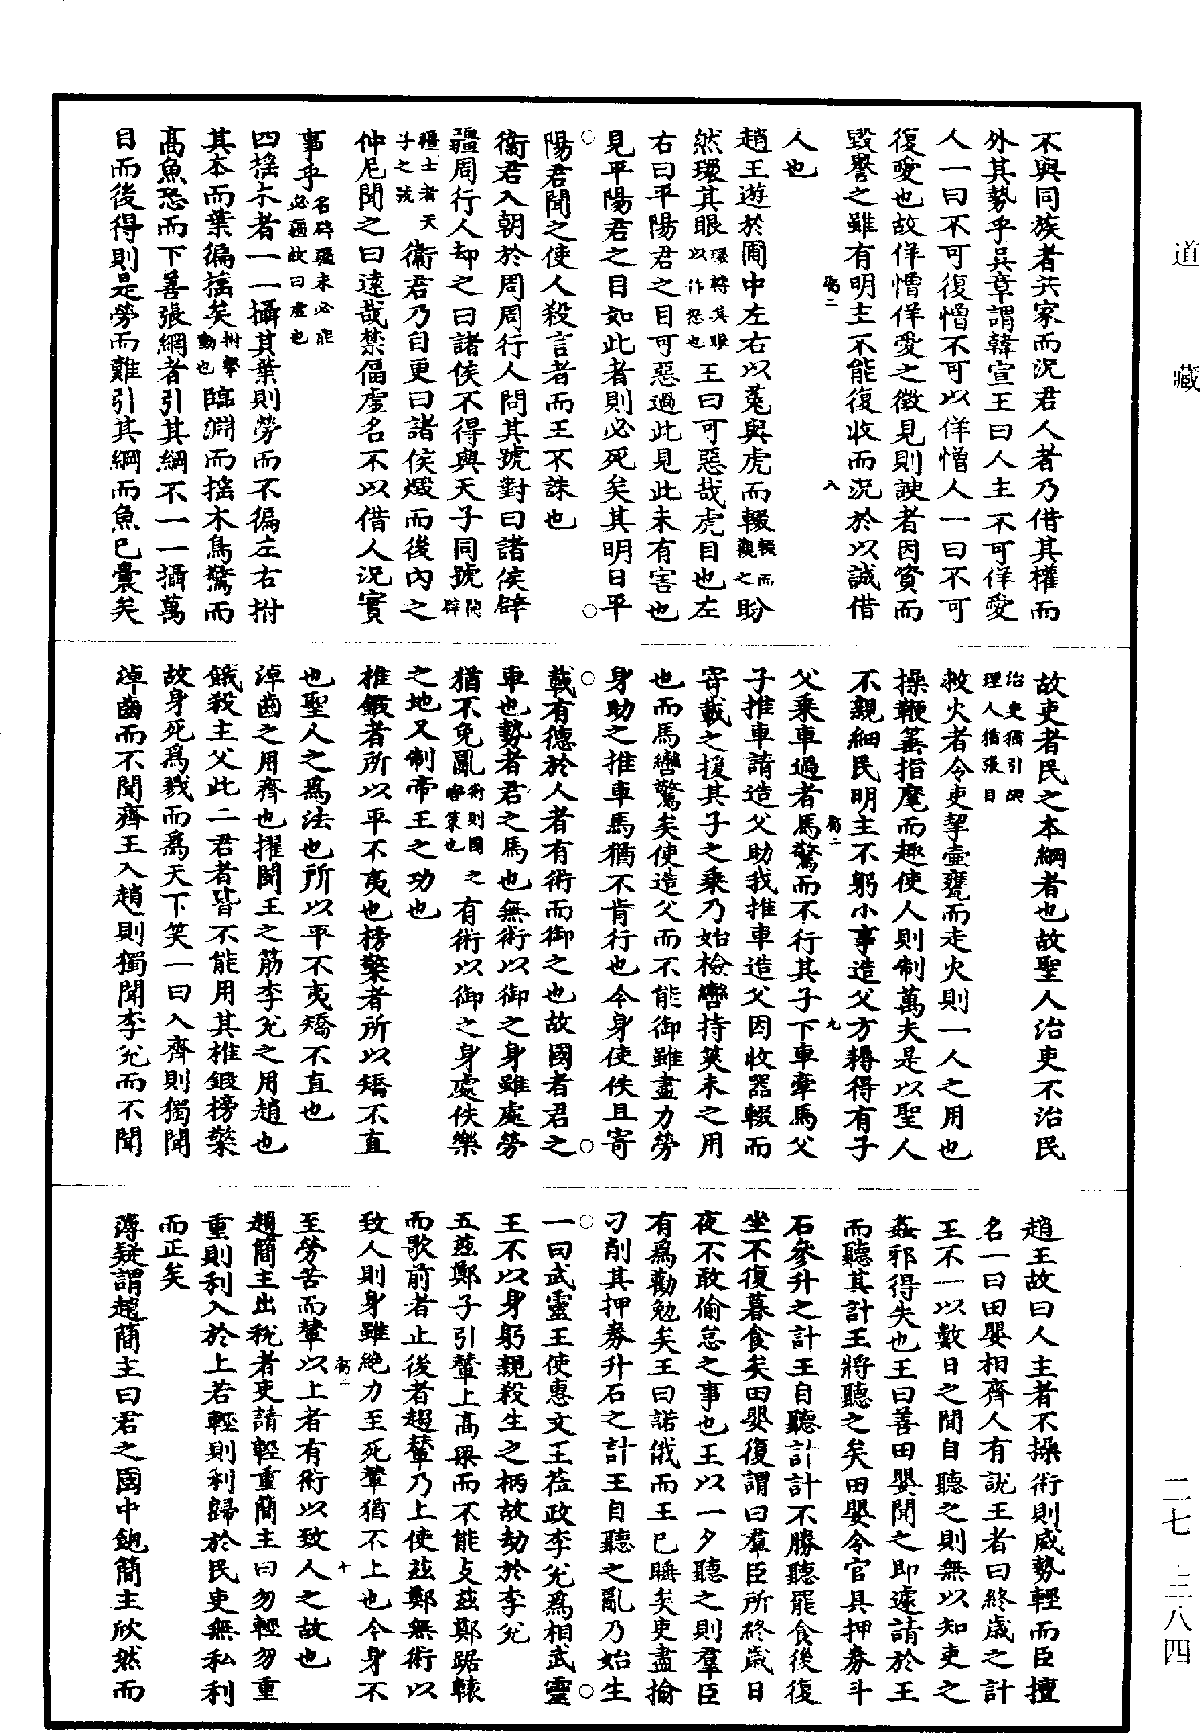 道藏
不與同族者共家而況君人者乃借其權而
外其勢乎吳章謂韓宣王曰人主不可佯愛
人一曰不可復憎不可以佯憎人一曰不可
復愛也故佯憎佯愛之徵見則諛者因資而
毀譽之雖有明主不能復收而況於以誠借
八
人也
趙王遊於圃中左右以菟與虎而輟輟而觀之盼
然環其眼環轉其眼以作怒也王曰可惡哉虎目也左
右曰平陽君之目可惡過此見此未有害也
見平陽君之目如此者則必死矣其明日平
○ ○
陽君聞之使人殺言者而王不誅也
衛君入朝於周周行人問其號對曰諸侯辟
疆周行人却之曰諸侯不得與天子同號開辟
疆士者天子之號衛君乃自更曰諸侯燬而後內之
仲尼聞之曰遠哉禁偪虛名不以借人況實
事乎名辟疆未必能必逼故曰虛也
四搖木者一一攝其葉則勞而不徧左右拊
其本而葉徧搖矣拊擊動也臨淵而搖木鳥驚而
高魚恐而下善張網者引其綱不一一攝萬
目而後得則是勞而難引其綱而魚已囊矣
故吏者民之本綱者也故聖人治吏不治民
治吏猶引綱理人猶張目
救火者令吏挈壺甕而走火則一人之用也
操鞭箠指麾而趣使人則制萬夫是以聖人
不親細民明主不躬小事造父方耨得有子
九
父乘車過者馬驚而不行其子下車牽馬父
子推車請造父助我推車造父因收器輟而
寄載之援其子之乘乃始檢轡持筴未之用
也而馬轡驚矣使造父而不能御雖盡力勞
身助之推車馬猶不肯行也今身使佚且寄
○ ○
載有德於人者有術而御之也故國者君之
車也勢者君之馬也無術以御之身雖處勞
猶不免亂術則國之審策也有術以御之身處佚樂
之地又制帝王之功也
椎鍛者所以平不夷也榜檠者所以矯不直
也聖人之為法也所以平不夷矯不直也
淖齒之用齊也擢閔王之筋李兊之用趙也
餓殺主父此二君者皆不能用其椎鍛榜檠
故身死為戮而為天下笑一曰入齊則獨聞
淖齒而不聞齊王入趙則獨聞李兊而不聞
趙王故曰人主者不操術則威勢輕而臣擅
名一曰田嬰相齊人有說王者曰終歲之計
王不一以數日之間自聽之則無以知吏之
姦邪得失也王曰善田嬰聞之即遽請於王
而聽其計王將聽之矣田嬰令官具押券斗
石參升之計王自聽計計不勝聽罷食後復
坐不復暮食矣田嬰復謂曰羣臣所終歲日
夜不敢偷怠之事也王以一夕聽之則羣臣
有為勸勉矣王曰諾俄而王已睡矣吏盡揄
刀削其押券升石之計王自聽之亂乃始生
○ ○
一曰武靈王使惠文王莅政李兊為相武靈
王不以身躬親殺生之柄故劫於李兊
五茲鄭子引輦上高梁而不能支茲鄭踞轅
而歌前者止後者趨輦乃上使茲鄭無術以
致人則身雖絕力至死輦猶不上也今身不
十
至勞苦而輦以上者有術以致人之故也
趙簡主出稅者吏請輕重簡主曰勿輕勿重
重則利入於上若輕則利歸於民吏無私利
而正矣
薄疑謂趙簡主曰君之國中飽簡主欣然而
二七
三八四